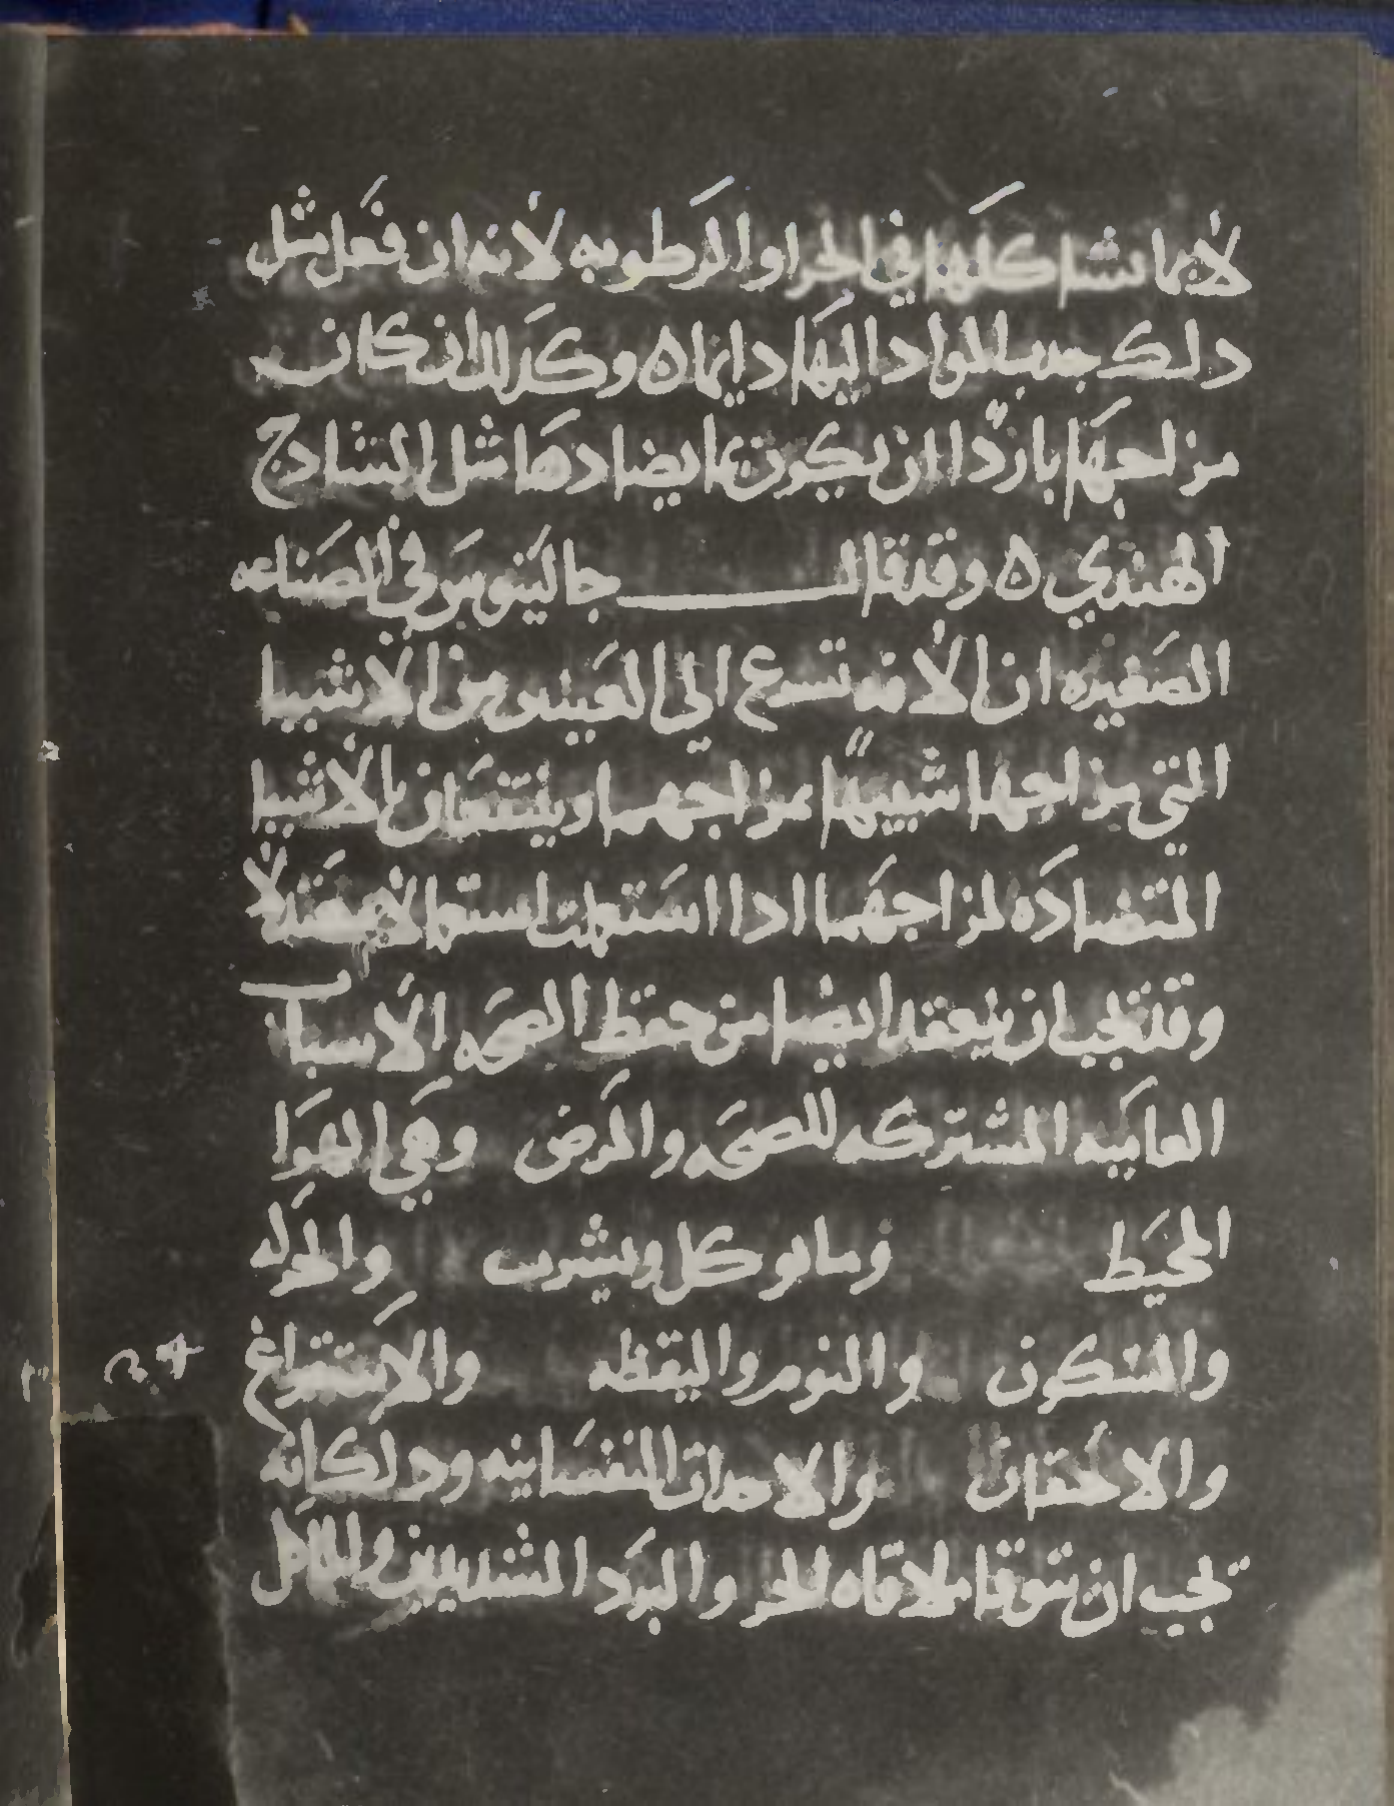 لا بما يشاكلها في الحر او الرطوبه لانه ان فعل مثل
دلك جدب المواد اليها دايما ه وكدلك ان كان
مزاجها باردا ان يكون بما يضادها مثل الشادج
الهندي ه وقد قال جالينوس في الصناعه
الصغيره ان الافه تسرع الي العينين من الاشيا
التي مزاجها شبيها بمزاجهما وينتفعان بالاشيا
المتضاده لمزاجهما ادا استعملت استعمالا معتدلا
وقد يجب ان يتفقد ايضا من حفظ الصحه الاسباب
العاميه المشتركه للصحه والمرض وهي الهوا
المحيط وما يوكل ويشرب والحركه
والسكون والنوم واليقظه والاستفراغ
والاحتقان والاحداث النفسانيه ودلك انه
يجب ان تتوقا ملاقاه الحر والبرد الشديدين